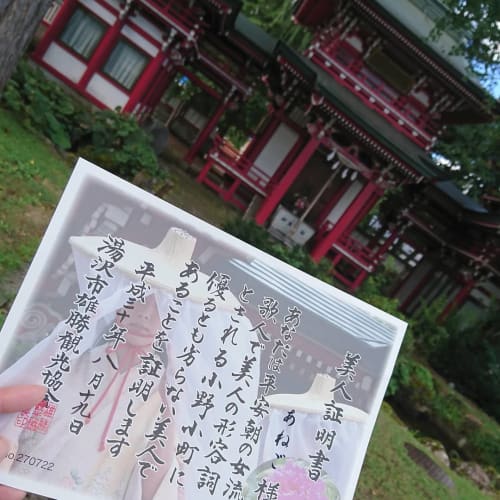 美人証明書
あねご 様
あなたは平安朝の女流
歌人で美人の形容詞
とされる小野小町に
優るとも劣らない美人で
あることを証明します
平成三十年八月十九日
湯沢市雄勝観光協会
No 270722